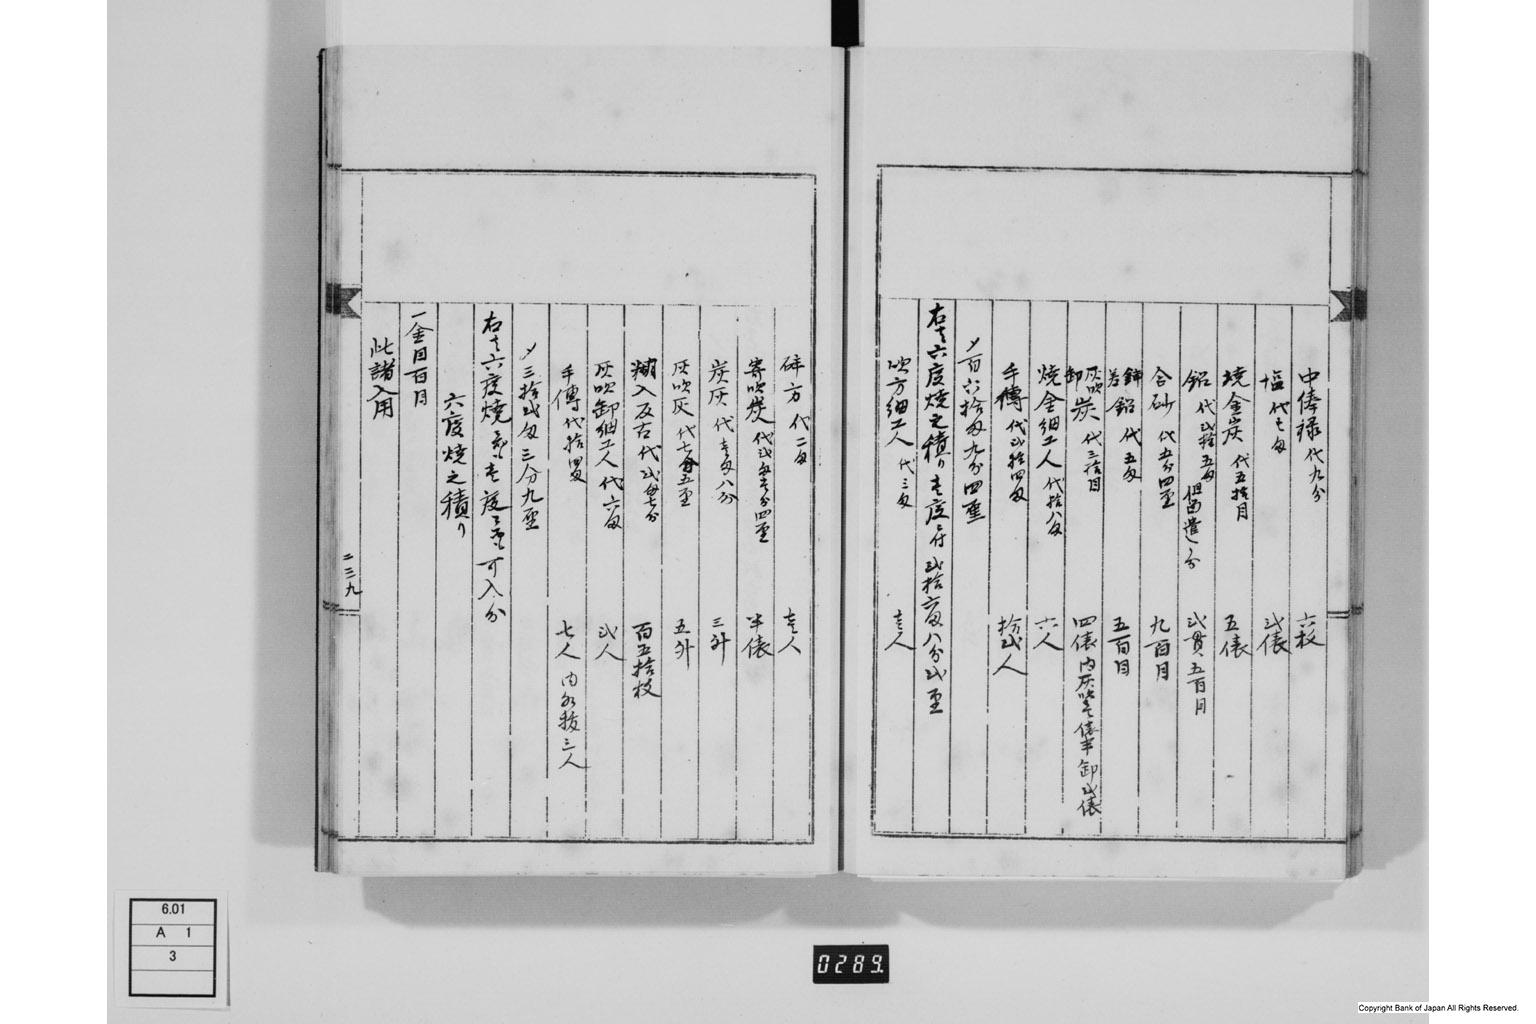 中俸禄 代九分 六枚
塩 代七匁 弐俵
焼金炭 代五拾目 五俵
鉛 代弐拾五匁 但 遣分 弐貫五百目
合砂 代五分四厘 九百目
鉛 代五匁 五百目
灰吹 卸 炭 代三拾目 四俵 内灰吹 俵半 卸弐俵
焼金細工人 代拾八匁 六人
手傳 代弐拾四匁 拾弐人
〆百六拾匁九分四厘
右者六度焼之積り壱度ニ付弐拾六匁八分弐厘
吹方細工人 代三匁 壱人
砕方 代二匁 壱人
寄吹炭 代弐匁 分四厘 半俵
炭灰 代壱匁八分 三升
灰吹灰 代七分五厘 五升
糊入反古 代弐匁七分 百五拾枚
灰吹卸細工人 代六匁 弐人
手傳 代拾四匁 七人 内 三人
〆三拾弐匁三分九厘
右者六度焼 壱度ニ 可入分
六度焼之積り
一金四百目
此諸入用
二三九
6.01
A 1
3
0289
Copyright Bank of Japan All Rights Reserved.